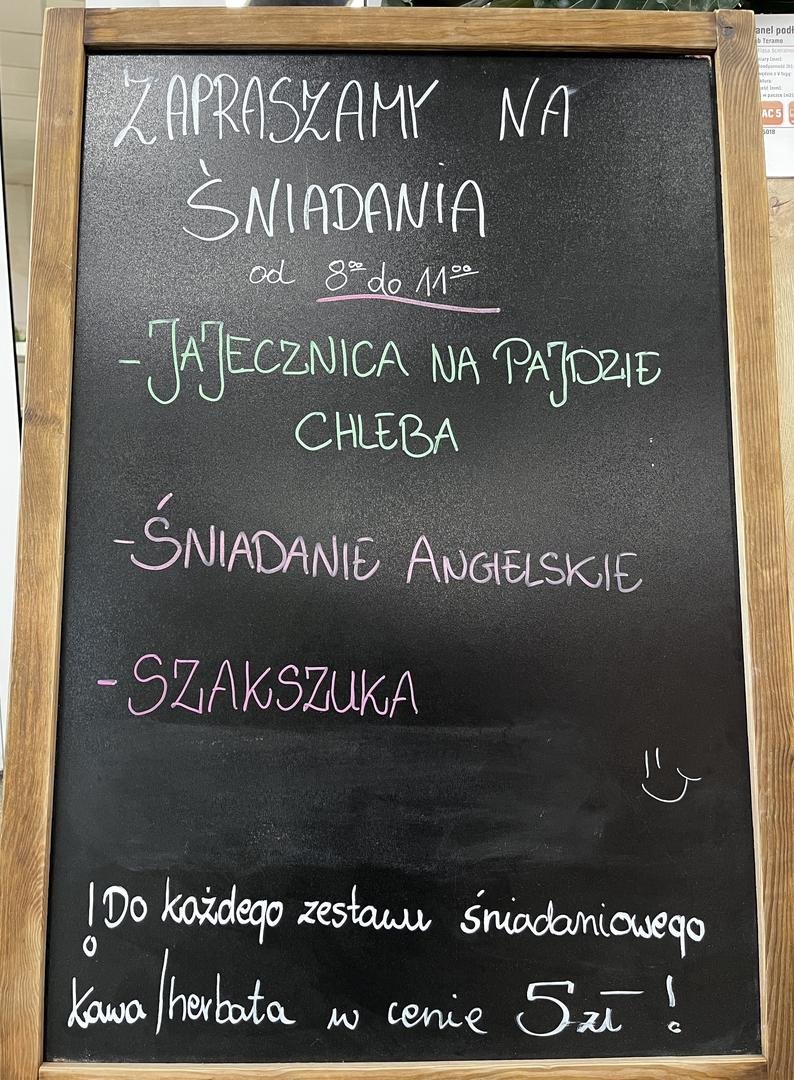 ZAPRASZAMY NA
ŚNIADANIA
od 8⁰⁰ do 11⁰⁰
- JAJECZNICA NA PAJDZIE
CHLEBA
- ŚNIADANIE ANGIELSKIE
- SZAKSZUKA
! Do każdego zestawu śniadaniowego
kawa/herbata w cenie 5 zł !
AC 5